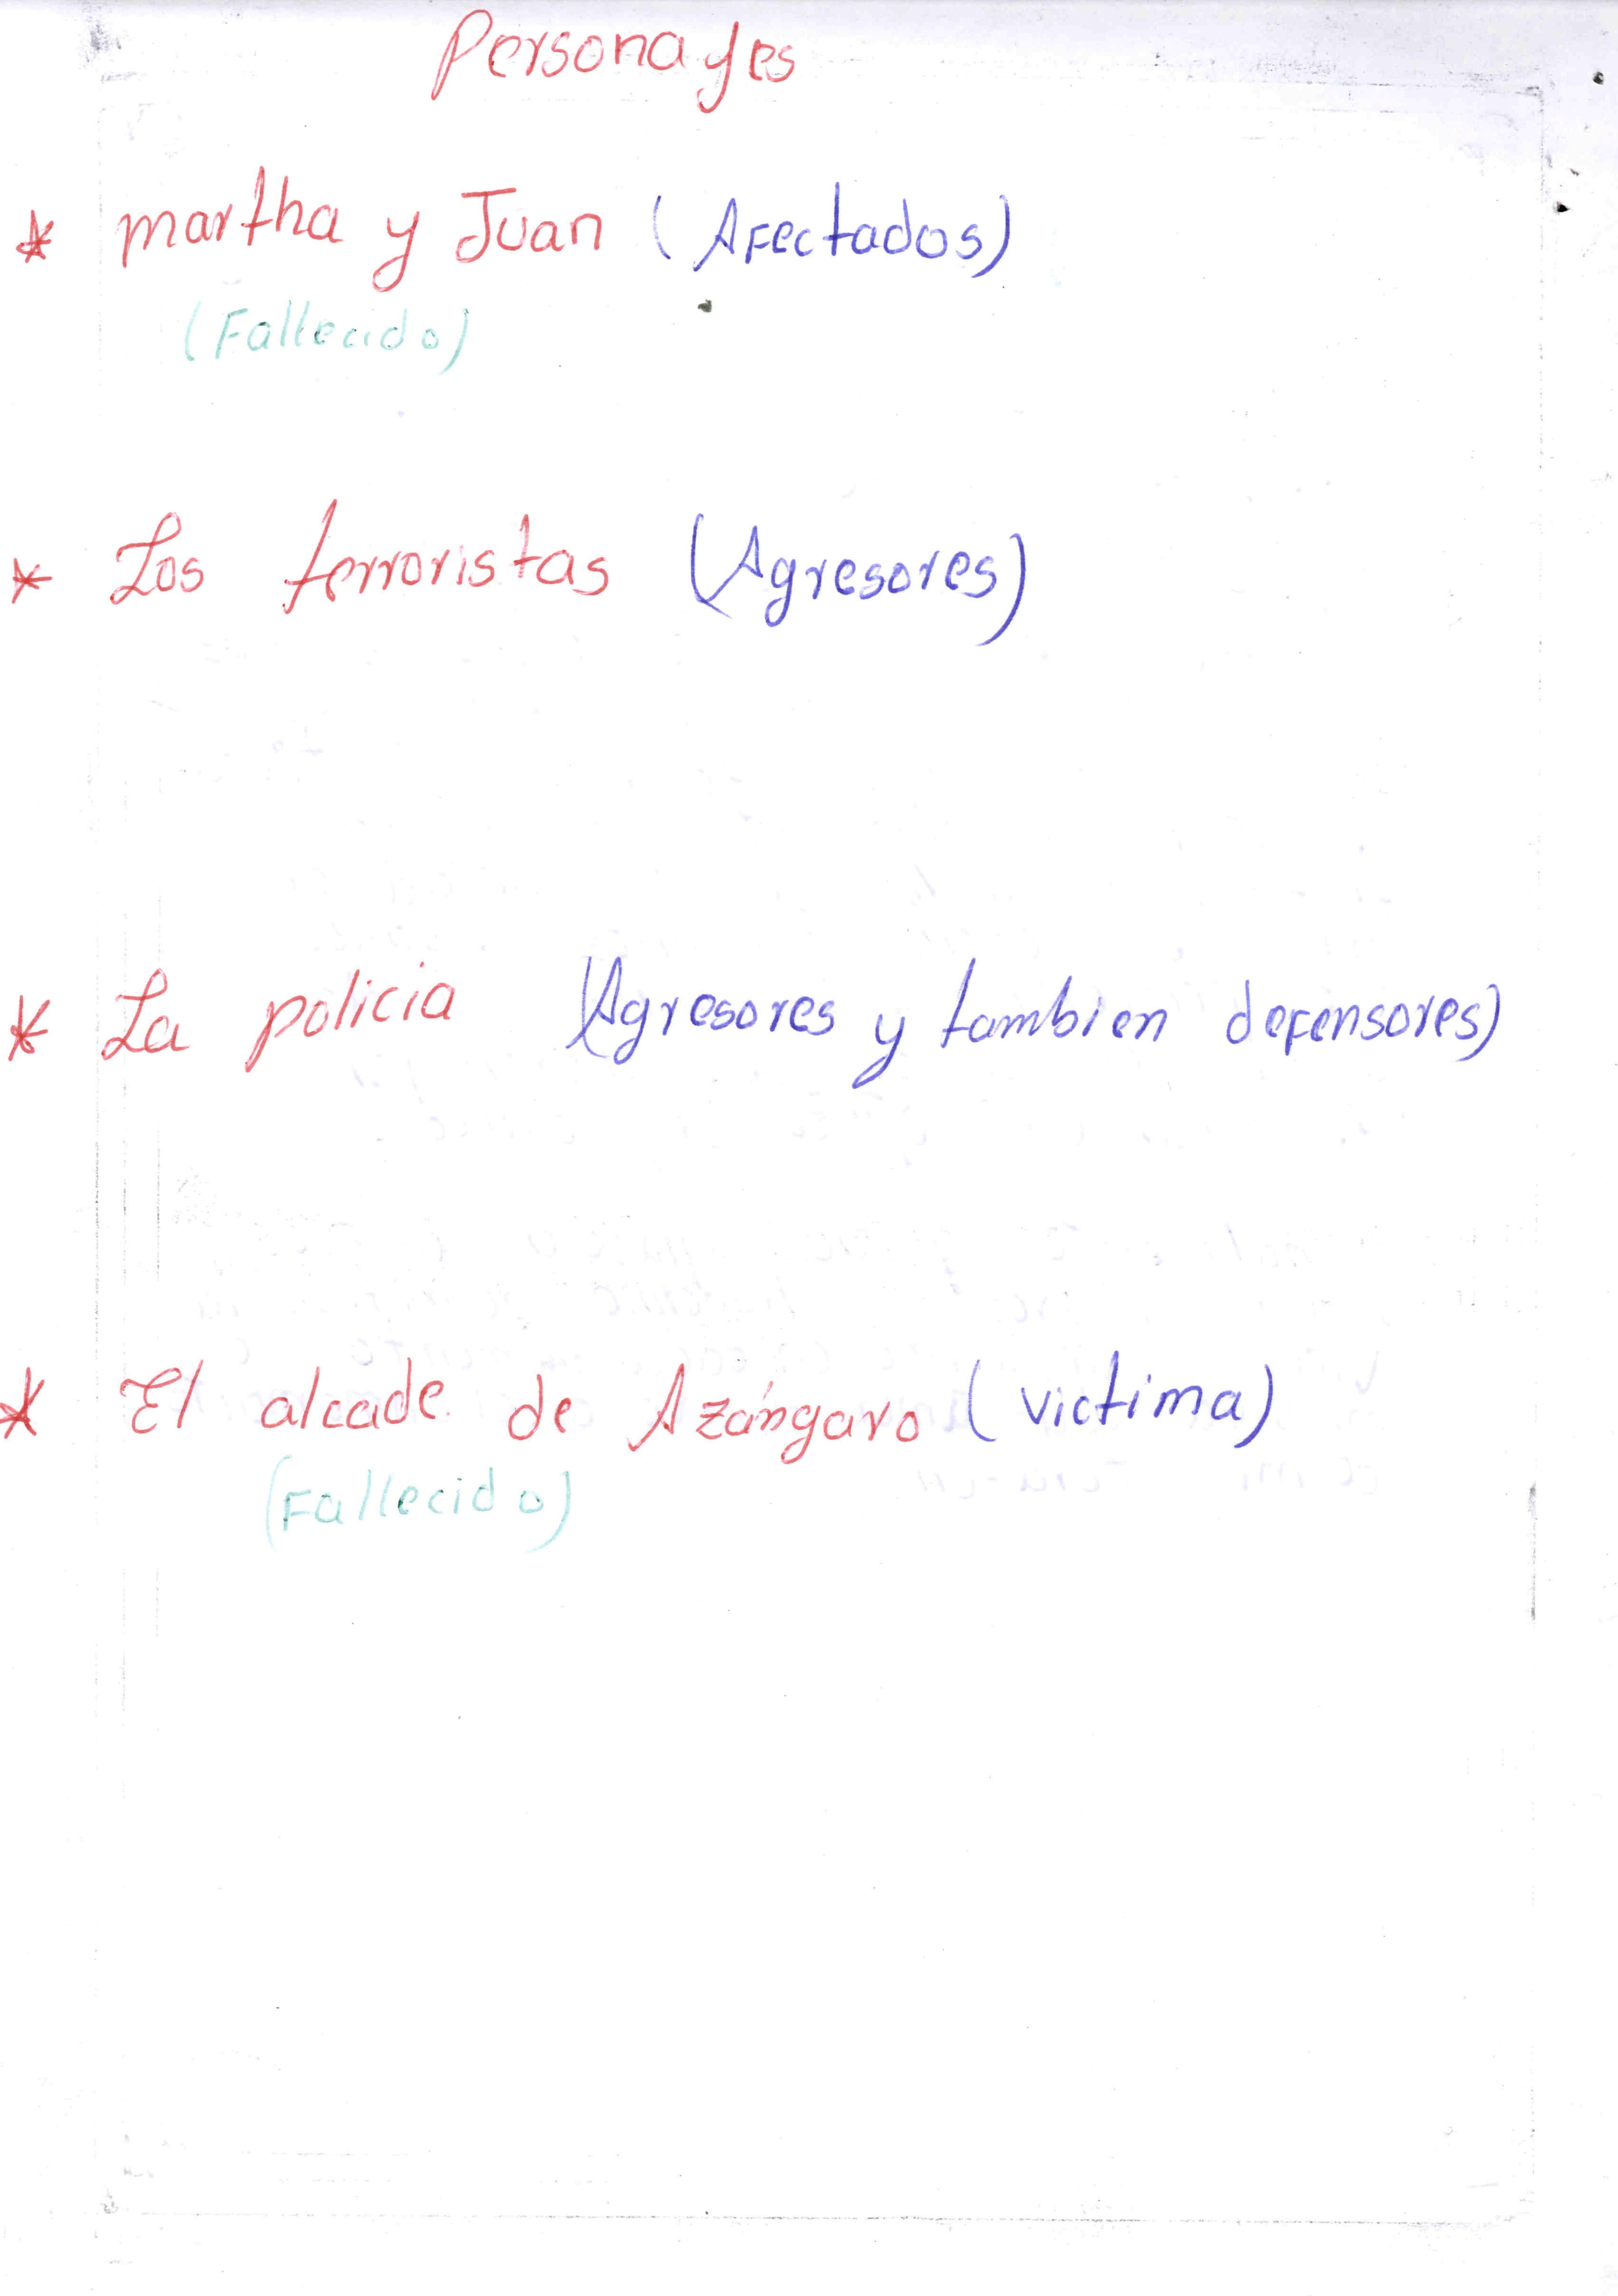 Personajes
* martha y Juan (Afectados)
(Fallecido)
* Los terroristas (Agresores)
* La policia (Agresores y tambien defensores)
* El alcade de Azángaro (victima)
(Fallecido)